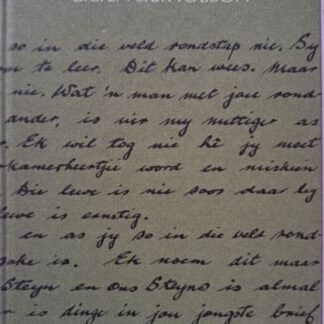 so in die veld rondstap nie. By
om te leer. Dit kan wees. Maar
nie. Wat 'n man met joue rond-
ander, is vir my nuttiger as
r. Ek wil tog nie hê jy moet
kamerheertjie word en miskien
Die lewe is nie soos daar by
lewe is ernstig.
en as jy so in die veld rond-
sake is. Ek noem dit maar
Steyn en ons Steyns is almal
is dinge in jou jongste brief